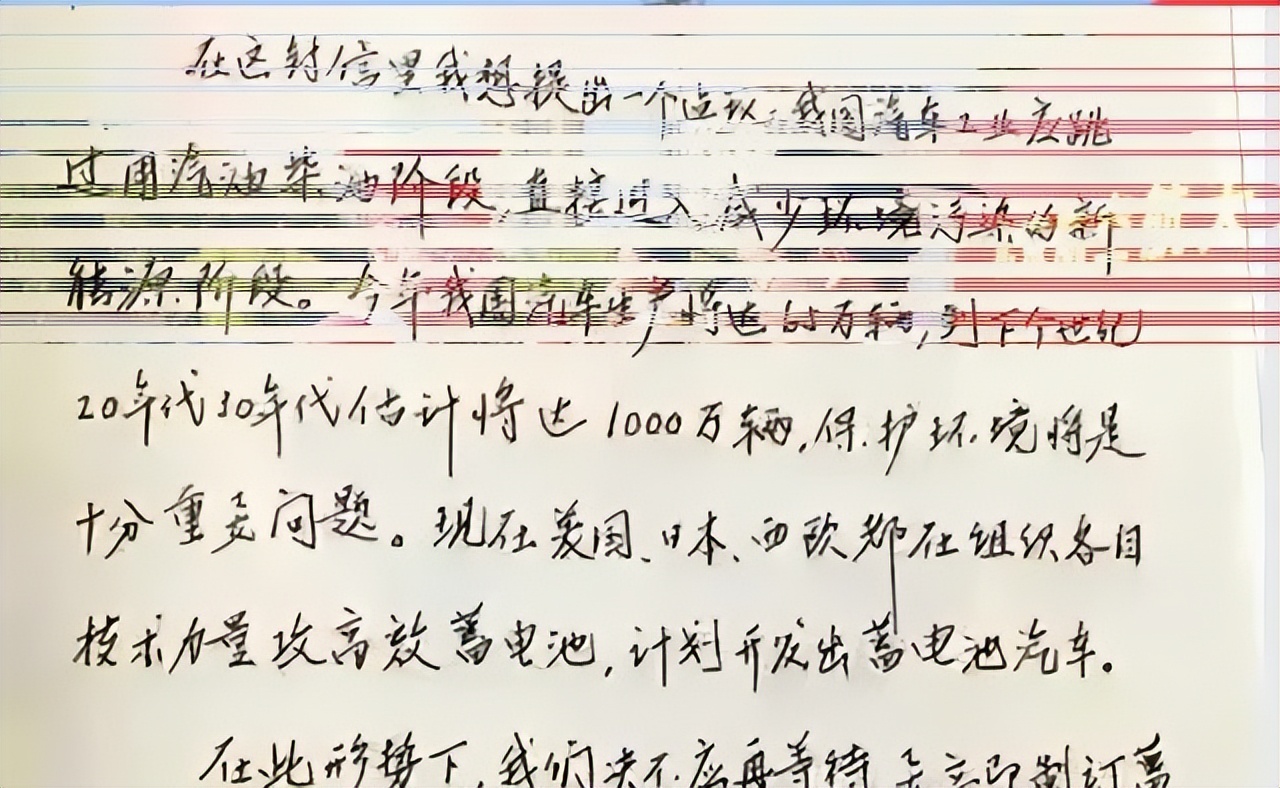 在这封信里我想提出一个建议：我国汽车工业应跳
过用汽油柴油阶段，直接进入减少环境污染的新
能源阶段。今年我国汽车生产将达 万辆，到下个世纪
20年代30年代估计将达1000万辆，保护环境将是
十分重要问题。现在美国、日本、西欧都在组织各自
技术力量攻高效蓄电池，计划开发出蓄电池汽车。
在此形势下，我们决不应再等待，要立即制订蓄